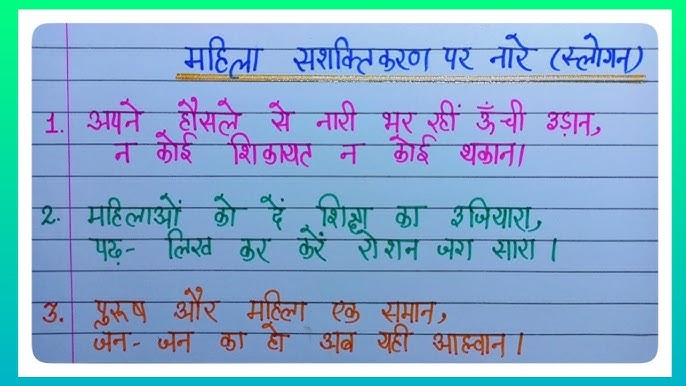 महिला सशक्तिकरण पर नारे (स्लोगन)
1. अपने हौसले से नारी भर रहीं ऊँची उड़ान,
न कोई शिकायत न कोई थकान।
2. महिलाओं को दें शिक्षा का उजियारा,
पढ़- लिख कर करें रोशन जग सारा।
3. पुरूष और महिला एक समान,
जन- जन का हो अब यही आह्वान।